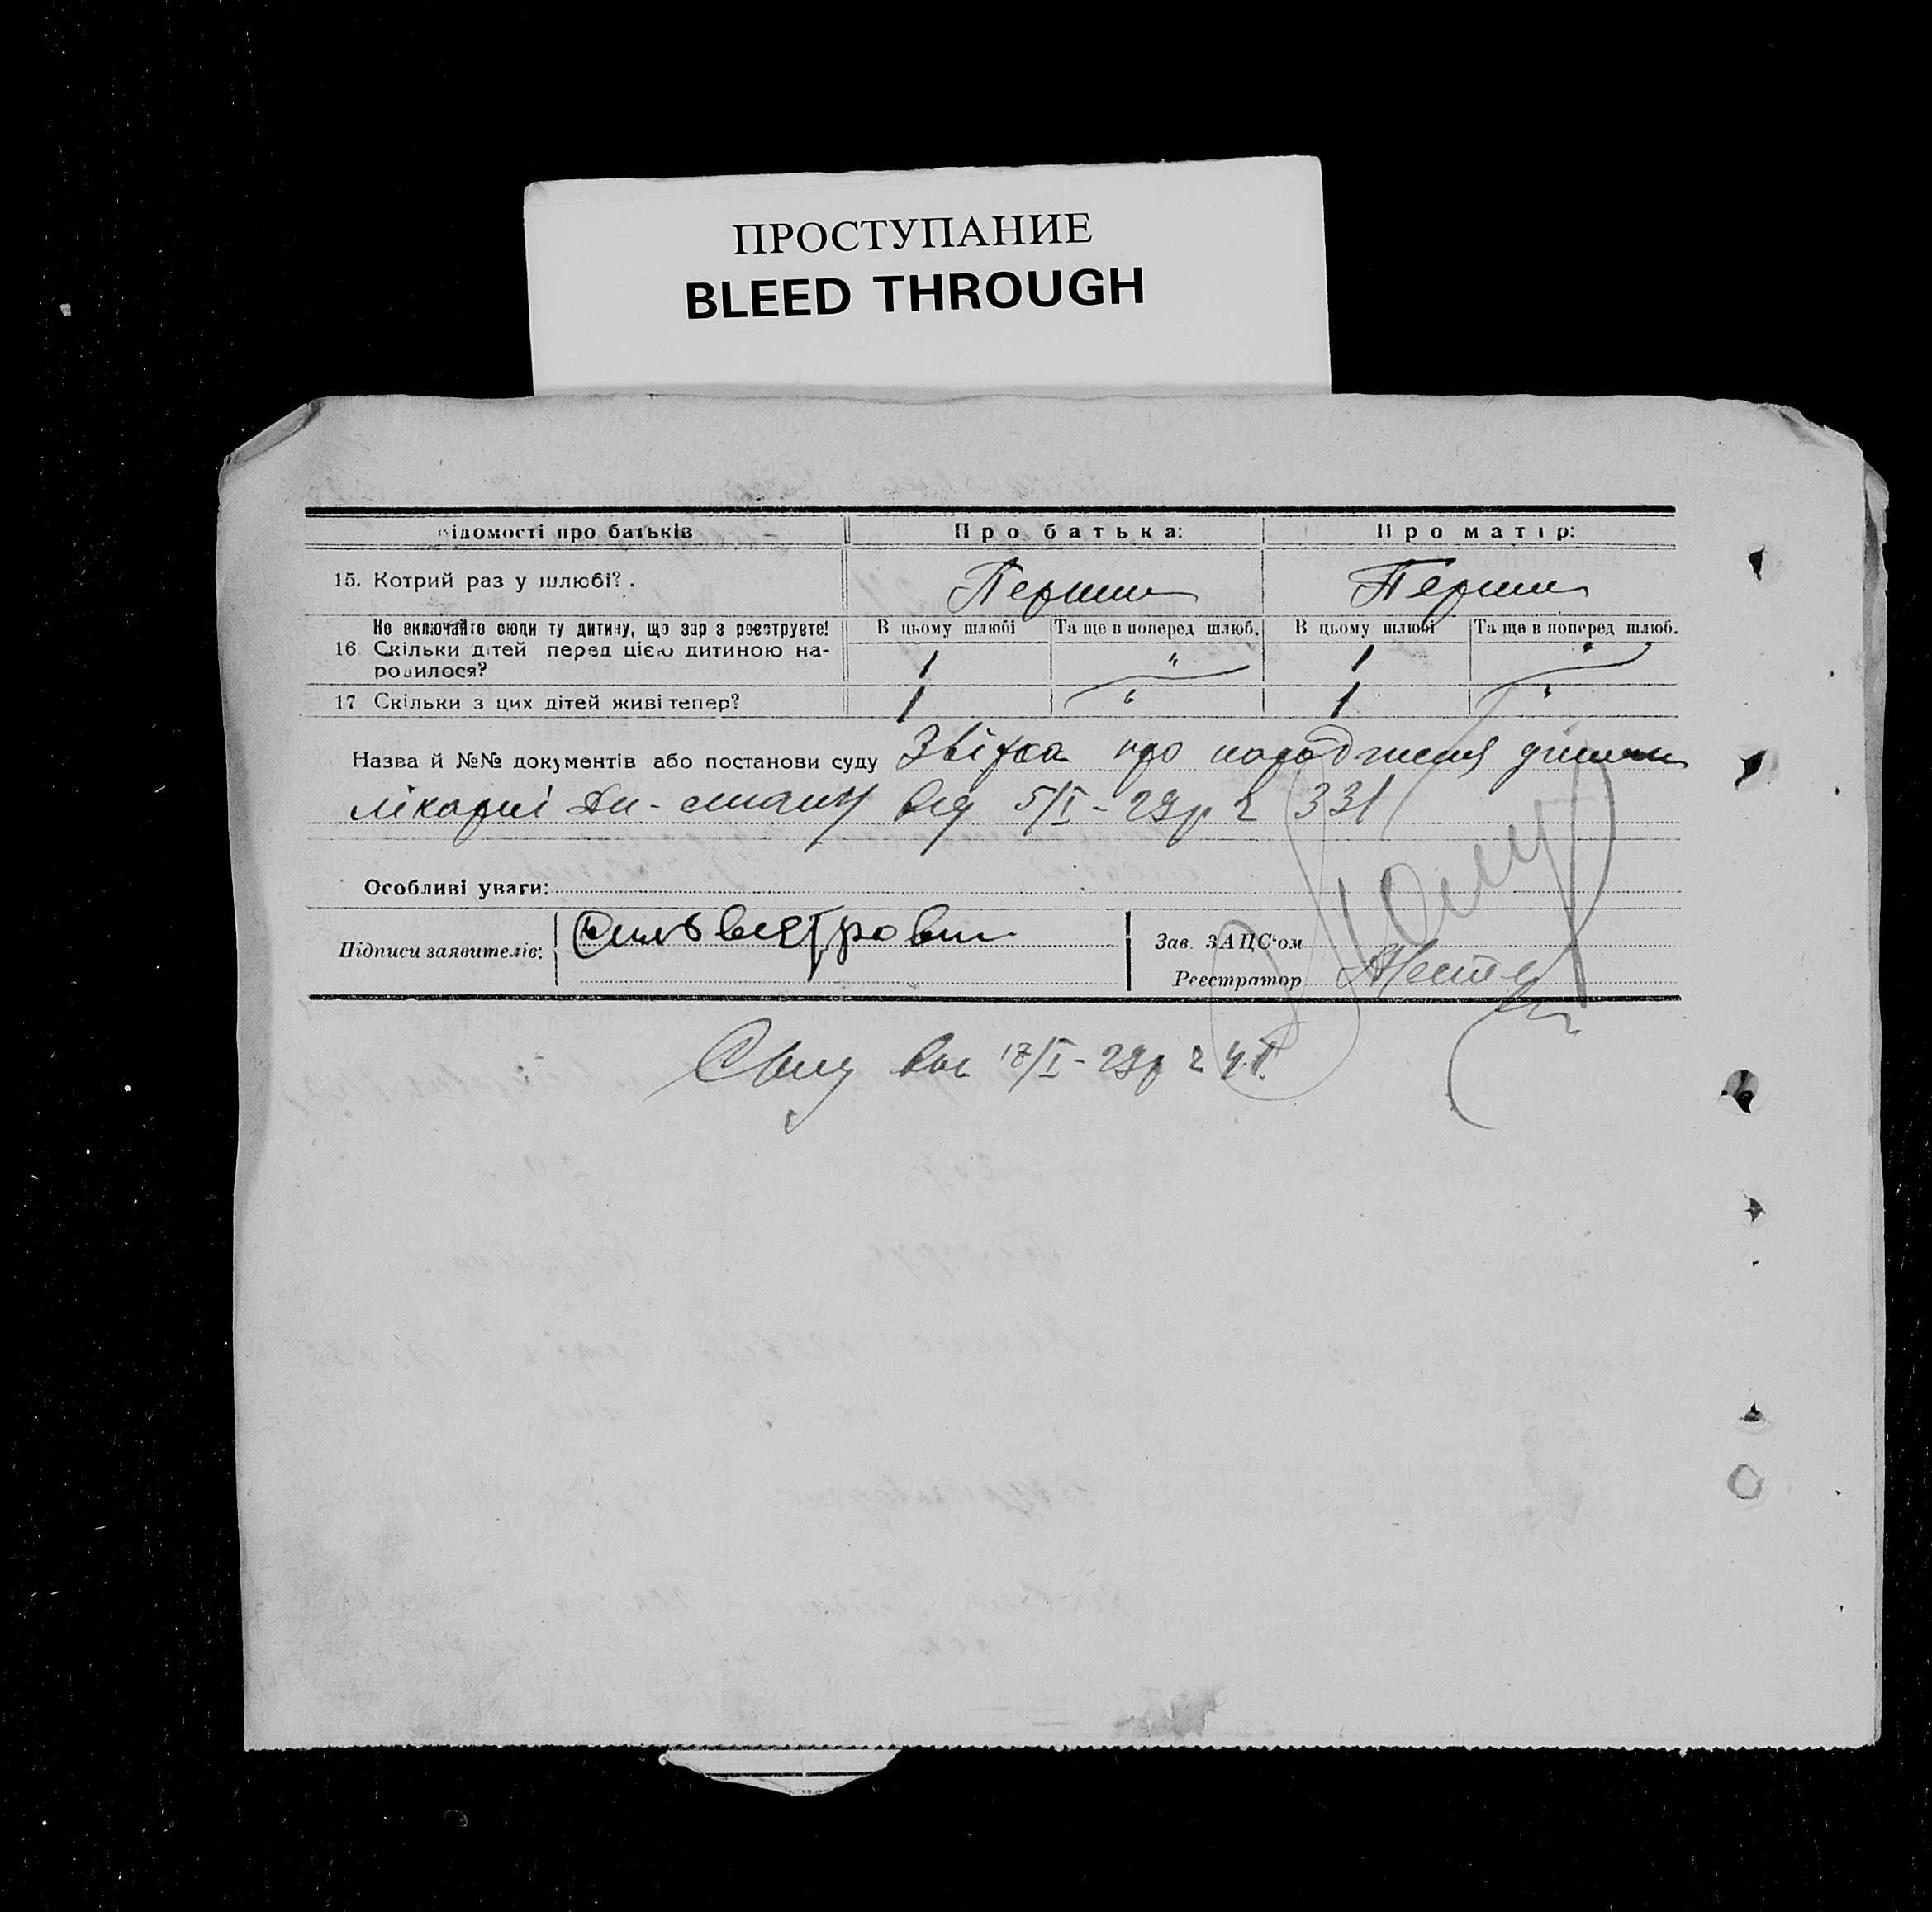 ПРОСТУПАНИЕ
BLEED THROUGH
відомості про батьків Про батька: Про матір:
15. Котрий раз у шлюбі?. Перший Перший
Не включайте сюди ту дитину, що зараз реєструєте! В цьому шлюбі Та ще в поперед шлюб. В цьому шлюбі Та ще в поперед шлюб.
16. Скільки дітей перед цією дитиною на-
родилося? 1 " 1 "
17 Скільки з цих дітей живі тепер? 1 " 1 "
Назва й №№ документів або постанови суду Звістка про народження
лікарні від 5/I-29р 331
Особливі уваги:
Підписи заявителів: Зав. ЗАЦС'ом
Реєстратор
/I-29р